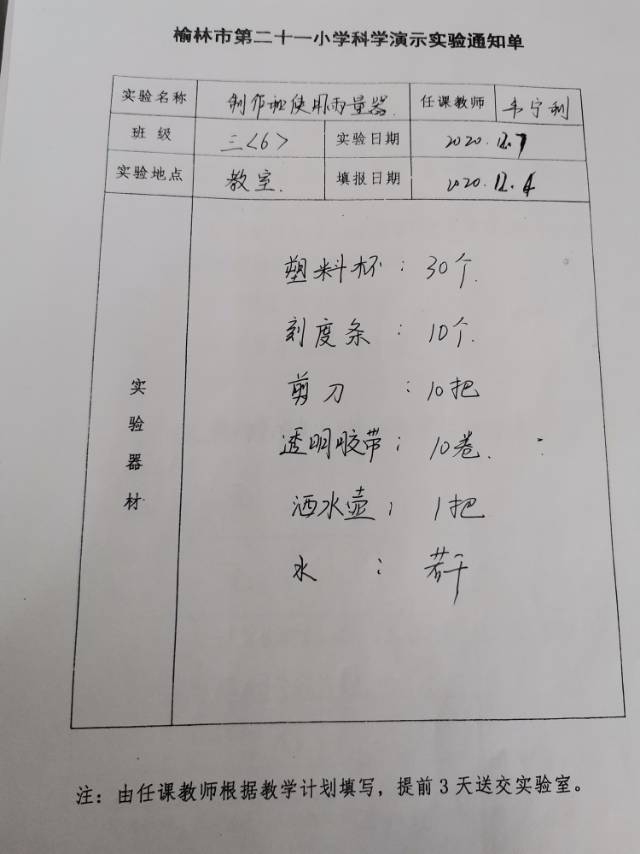 榆林市第二十一小学科学演示实验通知单
实验名称 制作和使用雨量器 任课教师 韦宁利
班级 三<6> 实验日期 2020.12.7
实验地点 教室. 填报日期 2020.12.4
实验器材
塑料杯：30个.
刻度条：10个.
剪刀：10把
透明胶带；10卷.
洒水壶；1把
水：若干
注：由任课教师根据教学计划填写，提前3天送交实验室。